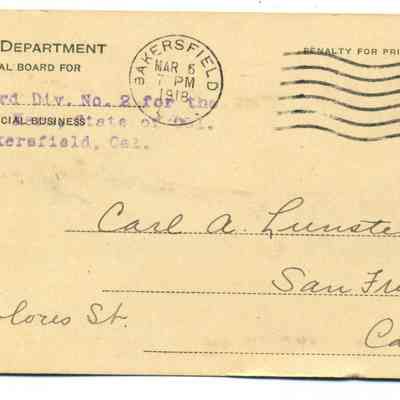 DEPARTMENT
AL BOARD FOR
rd Div. No. 2 for the
State of Cal.
CIAL BUSINESS
kersfield, Cal.
BAKERSFIELD
MAR 6
7 PM
1918
PENALTY FOR PRI
Carl A. Lunste
San Fr
olores St.
Ca